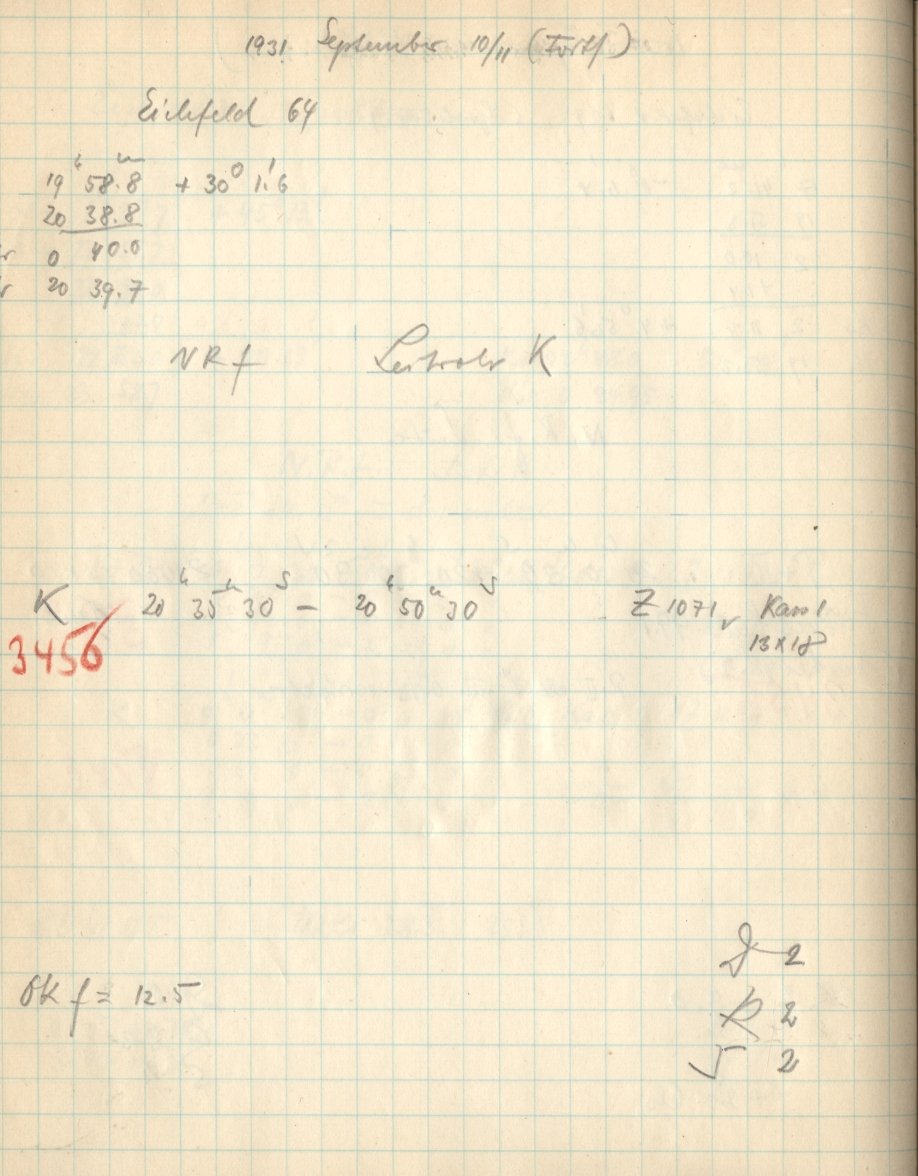 1931 September 10/11 (Forts.)
Eichfeld 64
19ʰ 58.8ᵐ + 30° 1.'6
20 38.8
r 0 40.0
r 20 39.7
NR f Leitrohr K
K 20ʰ 35ᵐ 30ˢ – 20ʰ 50ᵐ 30ˢ Z 1071, Kass 1
3456 13 x 18
2
OK f = 12.5
R 2
2